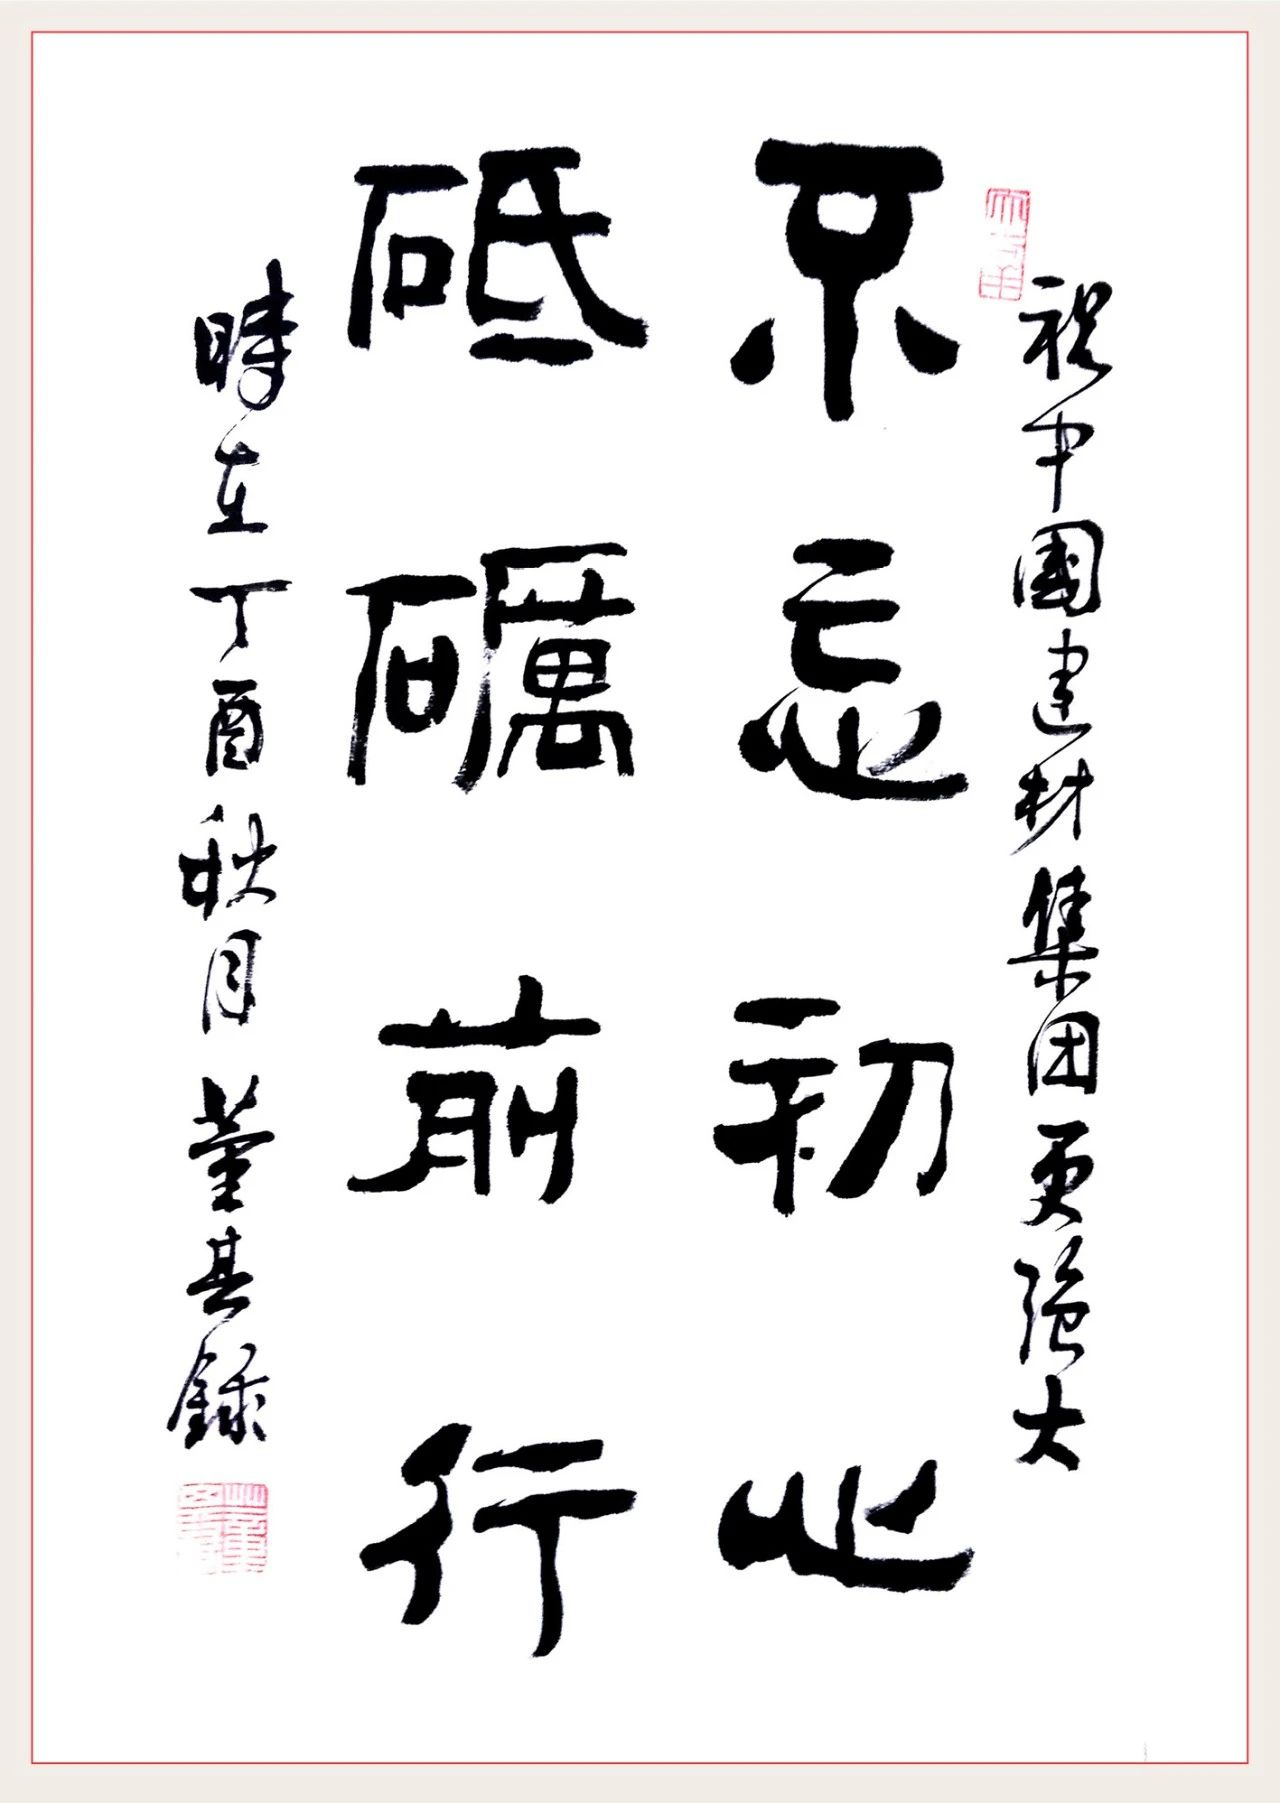 祝中國建材集团更强大
不忘初心
砥礪前行
時在丁酉秋月董其録